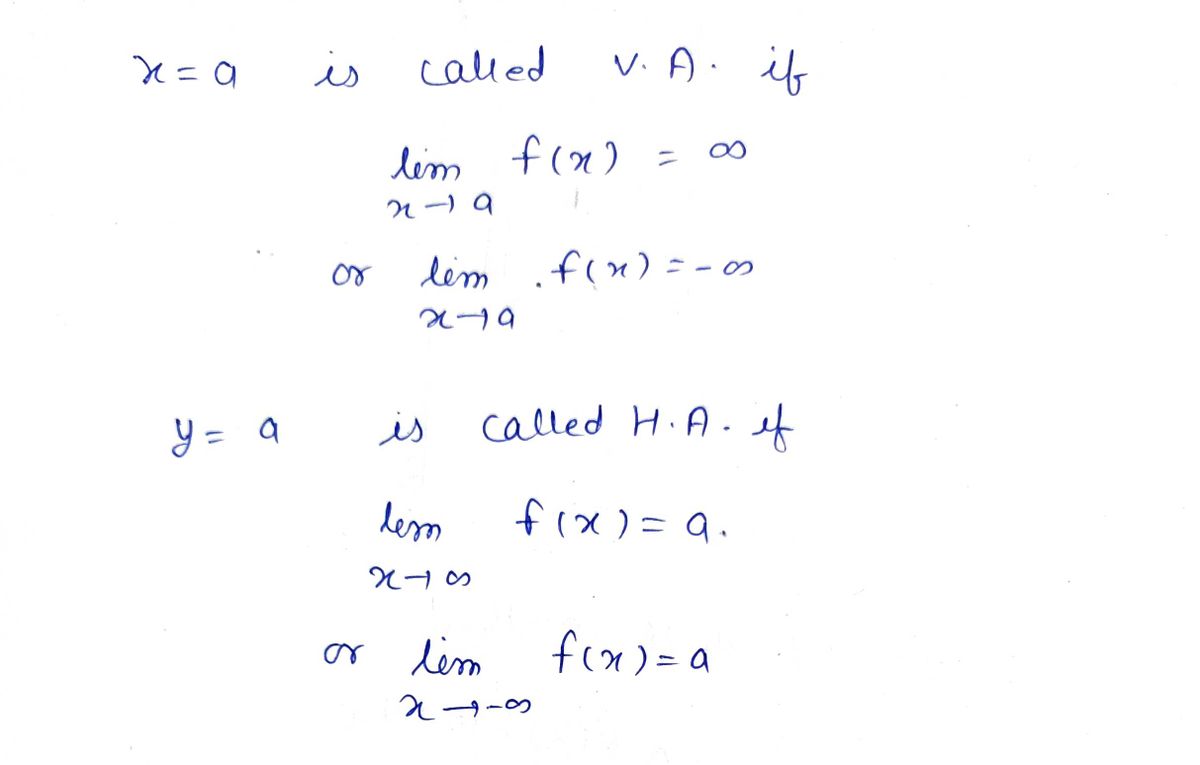 x = a is called V. A. if
lim f(x) = ∞
x→a
or lim f(x) = -∞
x→a
y = a is called H.A. if
lim f(x) = a.
x→∞
or lim f(x) = a
x→-∞